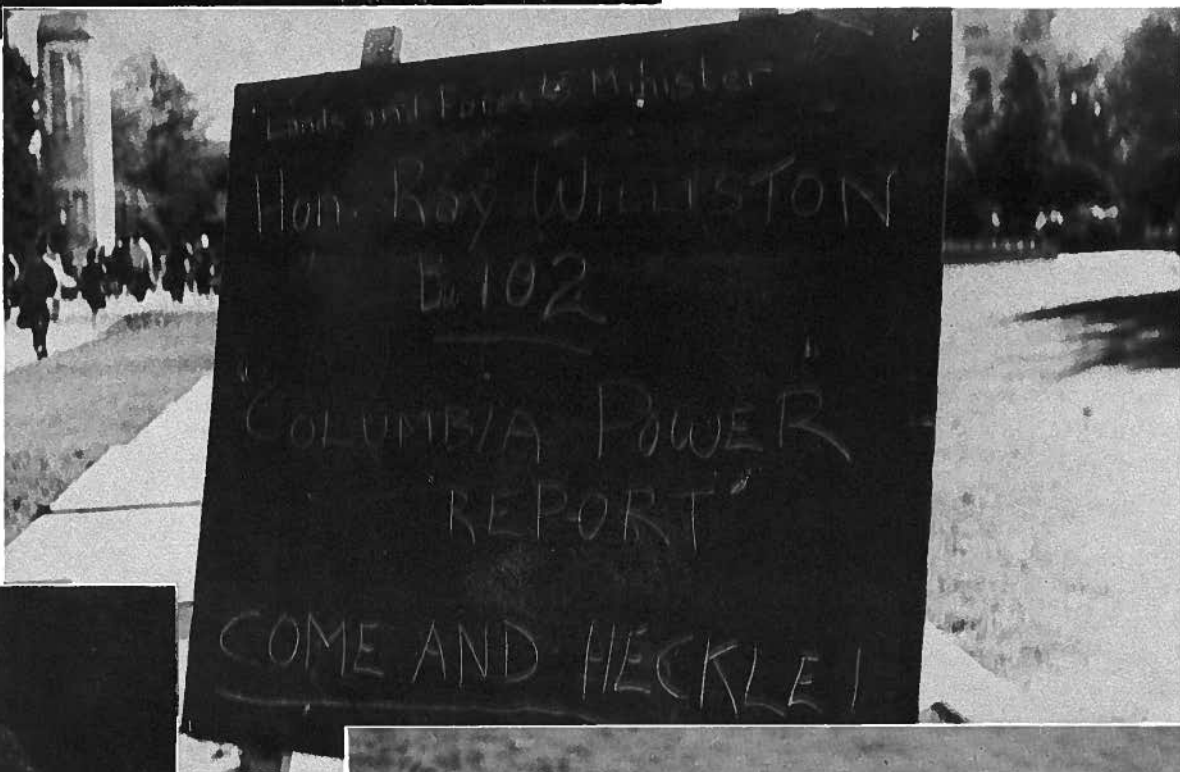 Lands and Forests Minister
Hon. Ray WILLISTON
Bu 102
"COLUMBIA POWER
REPORT"
COME AND HECKLE!